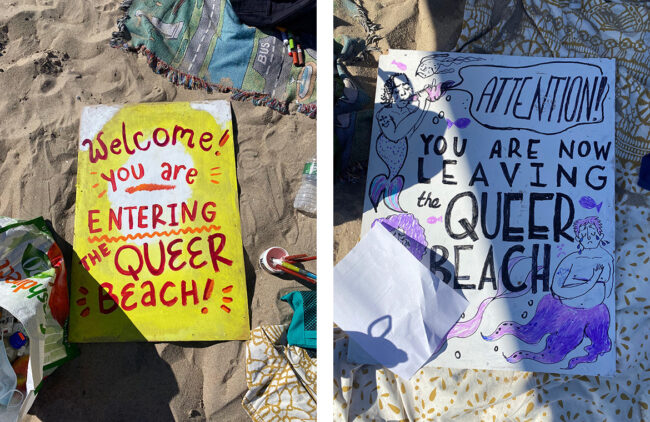 Welcome!
you are
ENTERING
THE QUEER
BEACH!
BUS
ATTENTION!!
YOU ARE NOW
LEAVING
the QUEER
BEACH